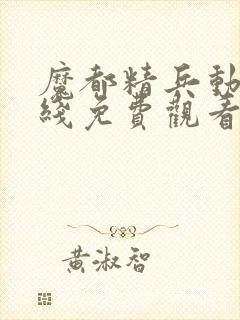 魔都精兵動
綫免費觀看
黃淑智